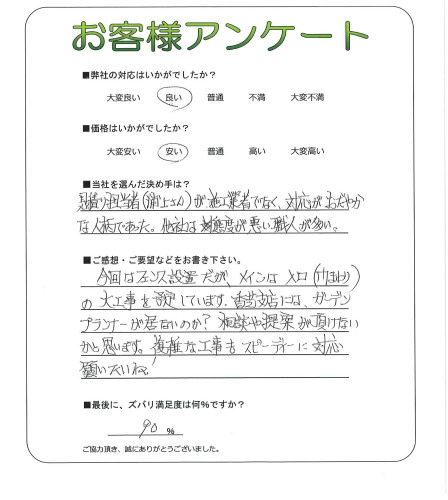 お客様アンケート
■弊社の対応はいかがでしたか?
大変良い 良い 普通 不満 大変不満
■価格はいかがでしたか?
大変安い 安い 普通 高い 大変高い
■当社を選んだ決め手は?
見積り担当者(浦上さん)が施工業者でなく、対応がおだやか
な人柄であった。他社は対態度が悪い職人が多い。
■ご感想・ご要望などをお書き下さい。
今回はフェンス設置だが、メインは入口(竹ほか)
の大工事を予定しています。支店には、ガーデン
プランナーが居ないのか?相談や提案が頂けない
かと思います。複雑な工事もスピーディーに対応
願いたいね!
■最後に、ズバリ満足度は何%ですか?
90 %
ご協力頂き、誠にありがとうございました。